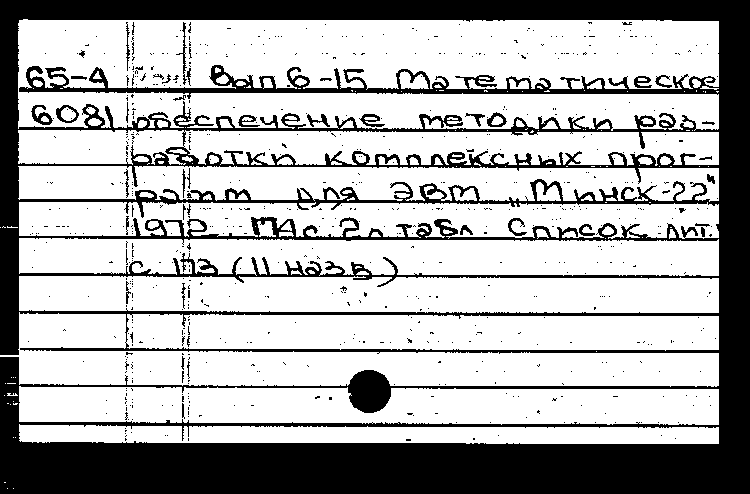 65-4 Вып. 6-15 Математическое
6081 обеспечение методики раз-
работки комплексных прог-
рамм для ЭВМ „Минск-22"
1972. с. 2 л. табл. Список лит.
с. 173 (11 назв)